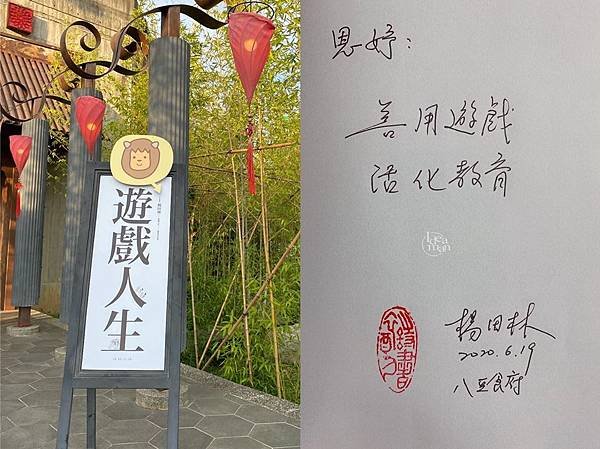 遊戲人生
恩妤：
善用遊戲
活化教育
Idea
man
楊田林
2020.6.19
八豆食府